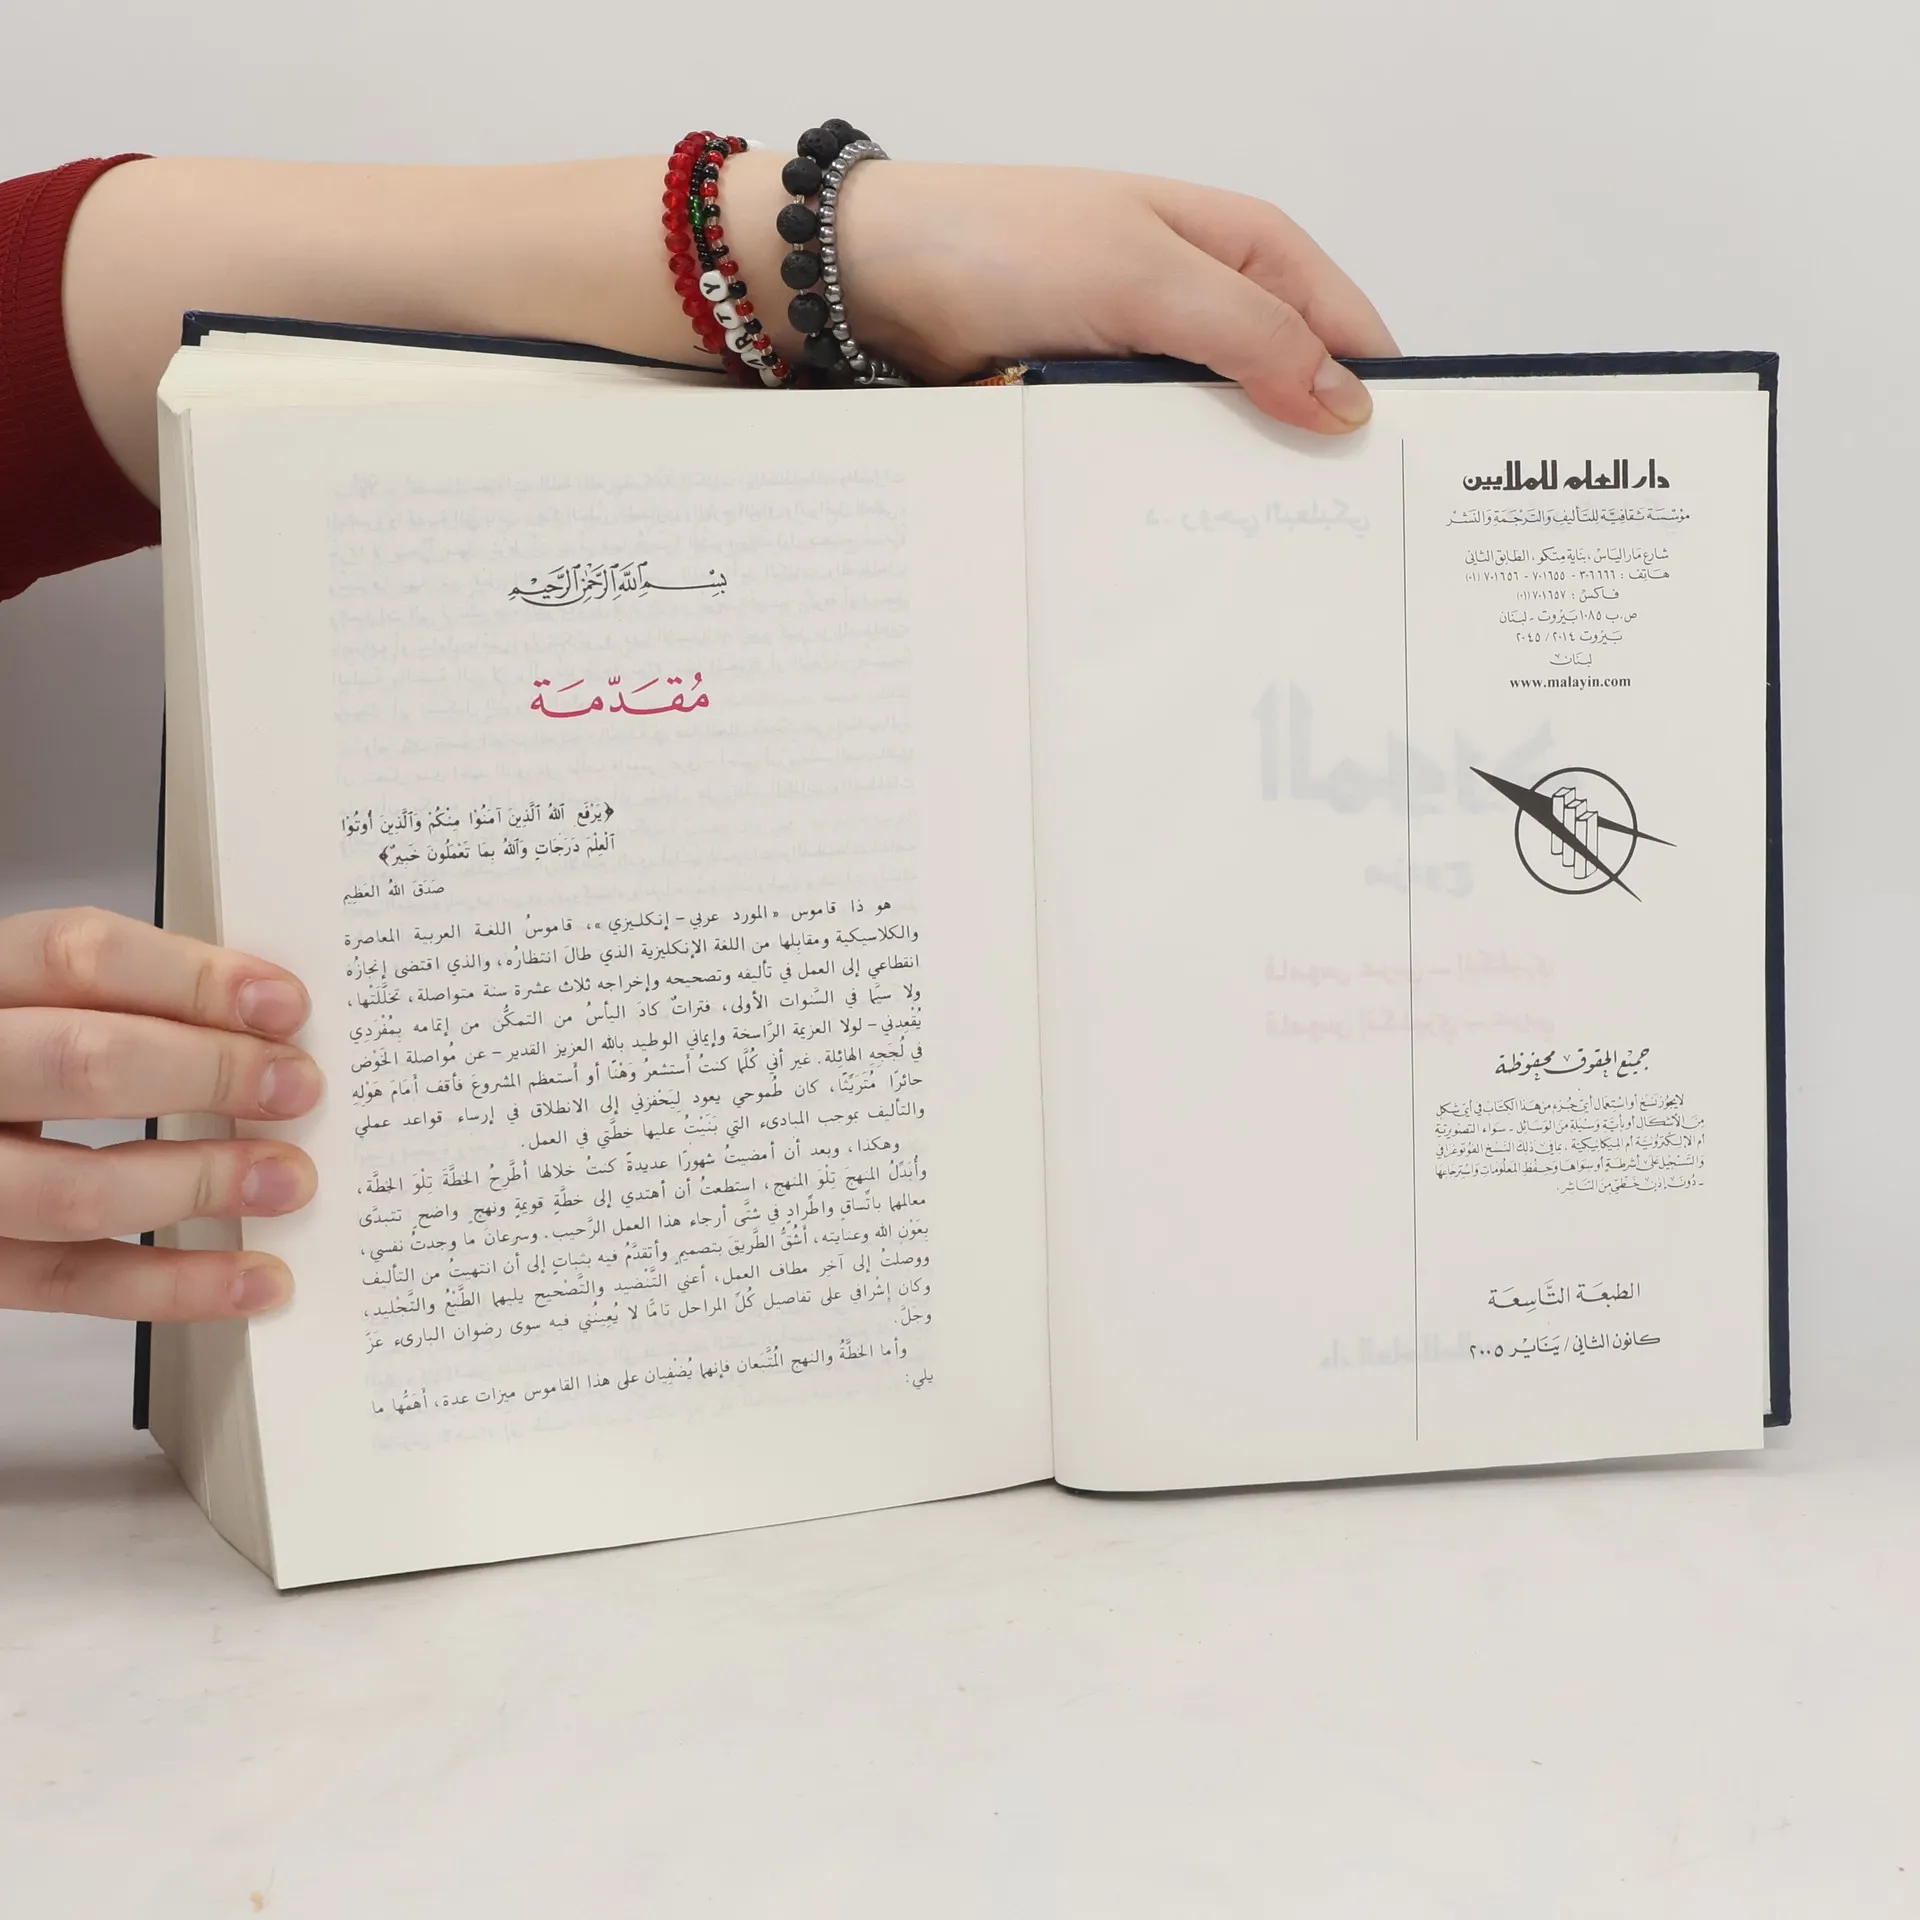 دار العلم للملايين
مؤسسة ثقافية للتأليف والترجمة والنشر
شارع مار الياس، بناية متكو، الطابق الثاني
هاتف : ٣٠٦٦٦٦ - ٧٠١٦٥٥ - ٧٠١٦٥٦ (٠١)
فاكس : ٧٠١٦٥٧ (٠١)
ص.ب ١٠٨٥ بيروت - لبنان
بيروت ٢٠١٤ / ٢٠٤٥
لبنان
www.malayin.com
جميع الحقوق محفوظة
لا يجوز نسخ أو استعمال أي جزء من هذا الكتاب في أي شكل
من الأشكال أو بأية وسيلة من الوسائل - سواء التصويرية
أم الالكترونية أم الميكانيكية، بما في ذلك النسخ الفوتوغرافي
والتسجيل على أشرطة أو سواها وحفظ المعلومات واسترجاعها
- دون إذن خطي من الناشر.
الطبعة التاسعة
كانون الثاني / يناير ٢٠٠٥
بسم الله الرحمن الرحيم
مُقدّمة
﴿يَرْفَعِ اللهُ الَّذِينَ آمَنُوْا مِنْكُمْ وَالَّذِينَ أُوتُوْا
الْعِلْمَ دَرَجَاتٍ وَاللهُ بِمَا تَعْمَلُونَ خَبِيرٌ﴾
صَدَقَ اللهُ العَظِيم
هو ذا قاموس «المورد عربي - إنكليزي»، قاموسُ اللغة العربية المعاصرة
والكلاسيكية ومقابِلها من اللغة الإنكليزية الذي طالَ انتظارُه، والذي اقتضى إنجازُه
انقطاعي إلى العمل في تأليفه وتصحيحه وإخراجه ثلاث عشرة سنة متواصلة، تخلَّلَتْها،
ولا سيَّما في السَّنوات الأولى، فتراتٌ كادَ اليأسُ من التمكُّن من إتمامه بِمُفْرَدِي
يُقْعِدني - لولا العزيمة الرَّاسخة وإيماني الوطيد بالله العزيز القدير - عن مُواصلة الخَوْض
في لُجَجِهِ الهائِلة. غير أني كُلَّما كنتُ أستشعرُ وَهْنًا أو أستعظم المشروعَ فأقف أَمَامَ هَوْلِهِ
حائرًا مُتَرَيِّثًا، كان طُموحي يعود لِيَحْفزني إلى الانطلاق في إرساء قواعد عملي
والتأليف بموجب المبادىء التي بَنَيْتُ عليها خطَّتي في العمل.
وهكذا، وبعد أن أمضيتُ شهورًا عديدةً كنتُ خلالها أَطَّرِحُ الخطَّةَ تِلْوَ الخطَّة،
وأُبَدِّلُ المنهجَ تِلوَ المنهج، استطعتُ أن أهتدي إلى خطَّةٍ قويمةٍ ونهجٍ واضحٍ تتبدَّى
معالمهما باتِّساقٍ واطِّرادٍ في شتَّى أرجاء هذا العمل الرَّحيب. وسرعانَ ما وجدتُ نفسي،
بِعَوْنِ الله وعنايته، أَشُقُّ الطَّريقَ بتصميمٍ وأتقدَّمُ فيه بثباتٍ إلى أن انتهيتُ من التأليف
ووصلتُ إلى آخر مطاف العمل، أعني التَّنْضيد والتَّصْحيح يليهما الطَّبْعُ والتَّجْليد،
وكان إشْرافي على تفاصيل كُلِّ المراحل تامًّا لا يُعِينُني فيه سوى رضوان البارىء عَزَّ
وجَلَّ.
وأما الخطَّةُ والنهج المُتَّبَعان فإنهما يُضْفِيان على هذا القاموس ميزات عدة، أَهَمُّها ما
يلي:
ARTY